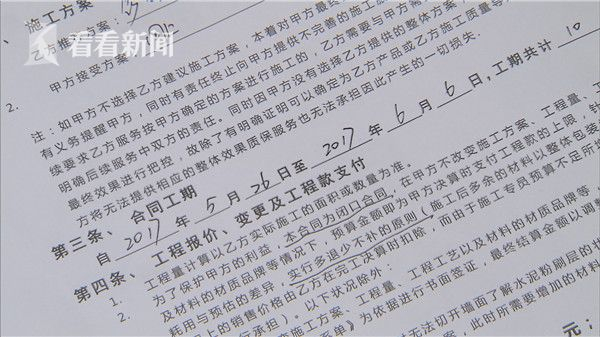 看看新闻
施工方案
乙方推
方案:
甲方接受方案
2.
注:如甲方不选择乙方建议施工方案,本着对甲方最终
有义务提醒甲方,同时有责任终止向甲方提供不完善的施工
续要求乙方服务按甲方确定的方案进行施工的,乙方需要与甲方需
明确后续服务中双方的责任。同时因甲方没有选择乙方提供的整体方案,
最终效果进行把控,故除了有明确证明可以确定为乙方产品或乙方施工质量等
方将无法提供相应的整体效果质保服务也无法承担因此产生的一切损失.
第三条、合同工期
自 2017 年 5 月 26 日至 2017 年 6 月 6 日,工期共计 10
第四条、工程报价、变更及工程款支付
1. 工程量计算以乙方实际施工的面积或数量为准。
2. 为了保护甲方的利益,本合同为闭口合同,在甲方不改变施工方案、工程量、工
及材料的材质品牌等情况下,预算金额即为甲方决算时支付工程款的上限,针
耗用与预估的差异,实行多退少不补的原则(施工后多余的材料以整体包装
上的销售价格由乙方在完工决算时扣除,而由于施工专员预算不足所增
行承担)。以下状况除外:
变施工方案、工程量、工程工艺以及材料的材质品牌等,
系单》为依据进行书面签证,最终结算金额以调整
时无法切开墙面了解水泥粉刷层的
案,此时所需要增加的材料
元;